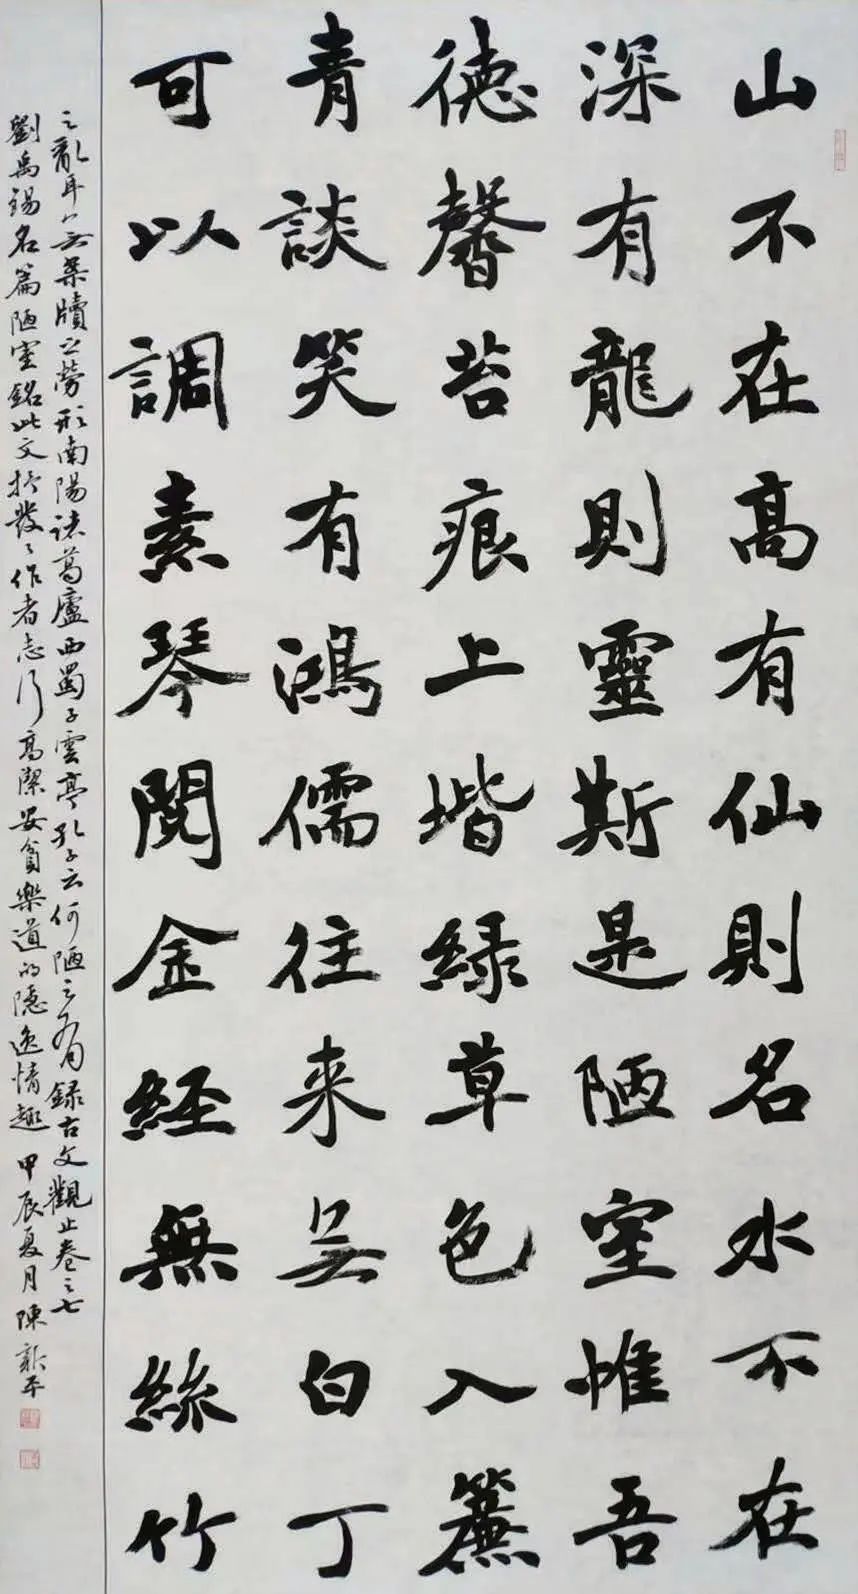 山不在高有仙則名水不在
深有龍則靈斯是陋室惟吾
德馨苔痕上堦緑草色入簾
青談笑有鴻儒往来无白丁
可以調素琴閱金経無絲竹
之亂耳无案牘之勞形南陽諸葛廬西蜀子雲亭孔子云何陋之有録古文觀止卷之七
劉禹錫名篇陋室銘此文抒發了作者志行高潔安貧樂道的隱逸情趣 甲辰夏月陳新平